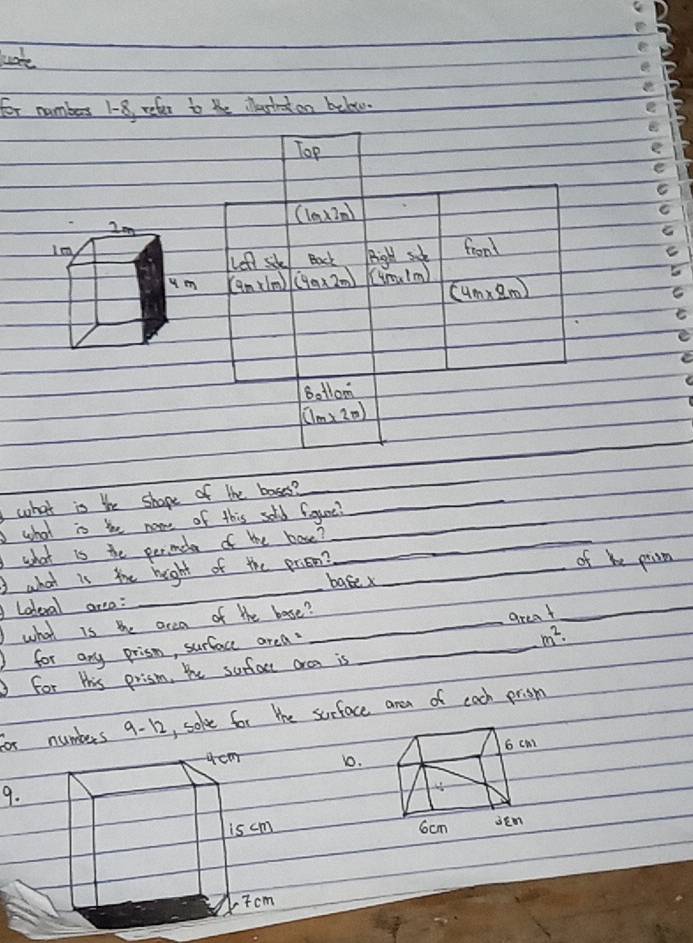 For numbers 1-8, refer to the illustration below.
Top
(1m x 2m)
2m
1m
4m
Left side
(4m x 1m)
Back
(4m x 2m)
Right side
(4m x 1m)
front
(4m x 2m)
Bottom
(1m x 2m)
what is the shape of the bases?
what is the name of this solid figure?
what is the perimeter of the base?
what is the height of the prism?
Lateral area: base x of the prism
what is the area of the base?
for any prism, surface area = area +
For this prism, the surface area is m².
For numbers 9-12, solve for the surface area of each prism
9.
4cm
15 cm
7cm
10.
6 cm
6cm